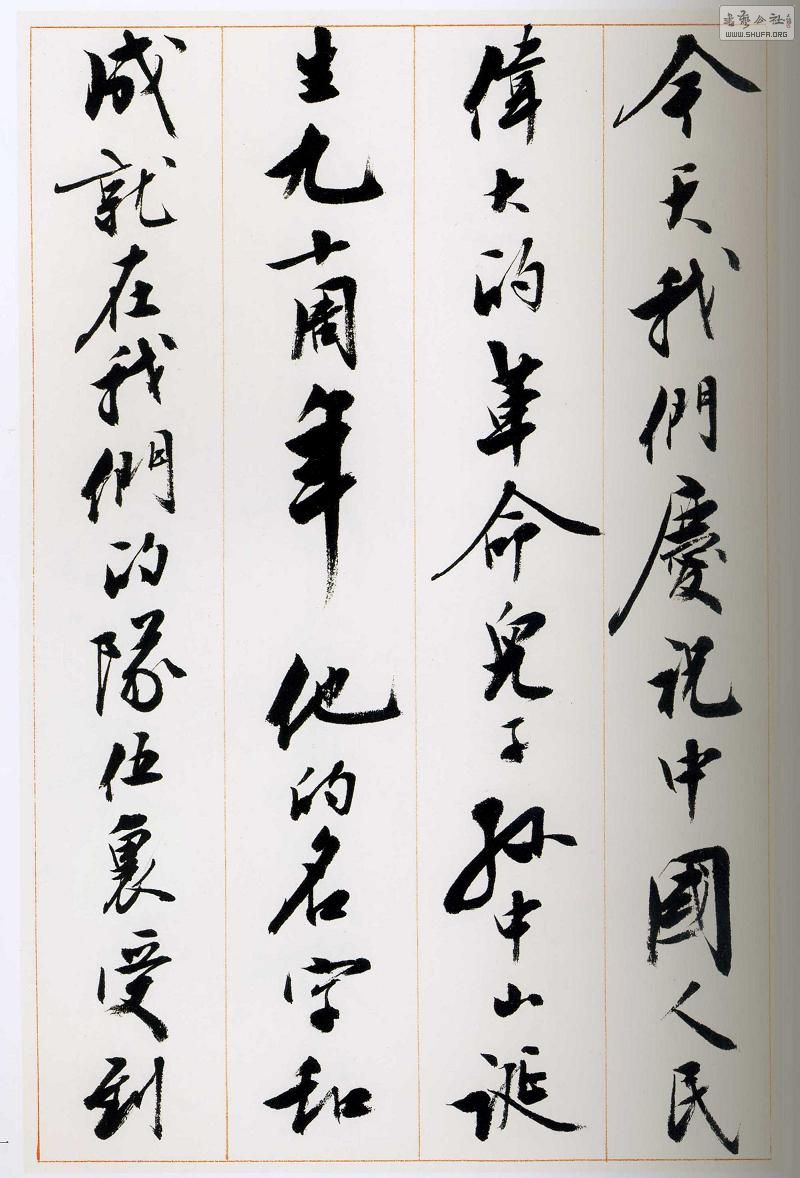 今天我們慶祝中國人民
偉大的革命兒子孫中山誕
生九十周年 他的名字和
成就在我們的隊伍裏受到
書藝公社
WWW.SHUFA.ORG